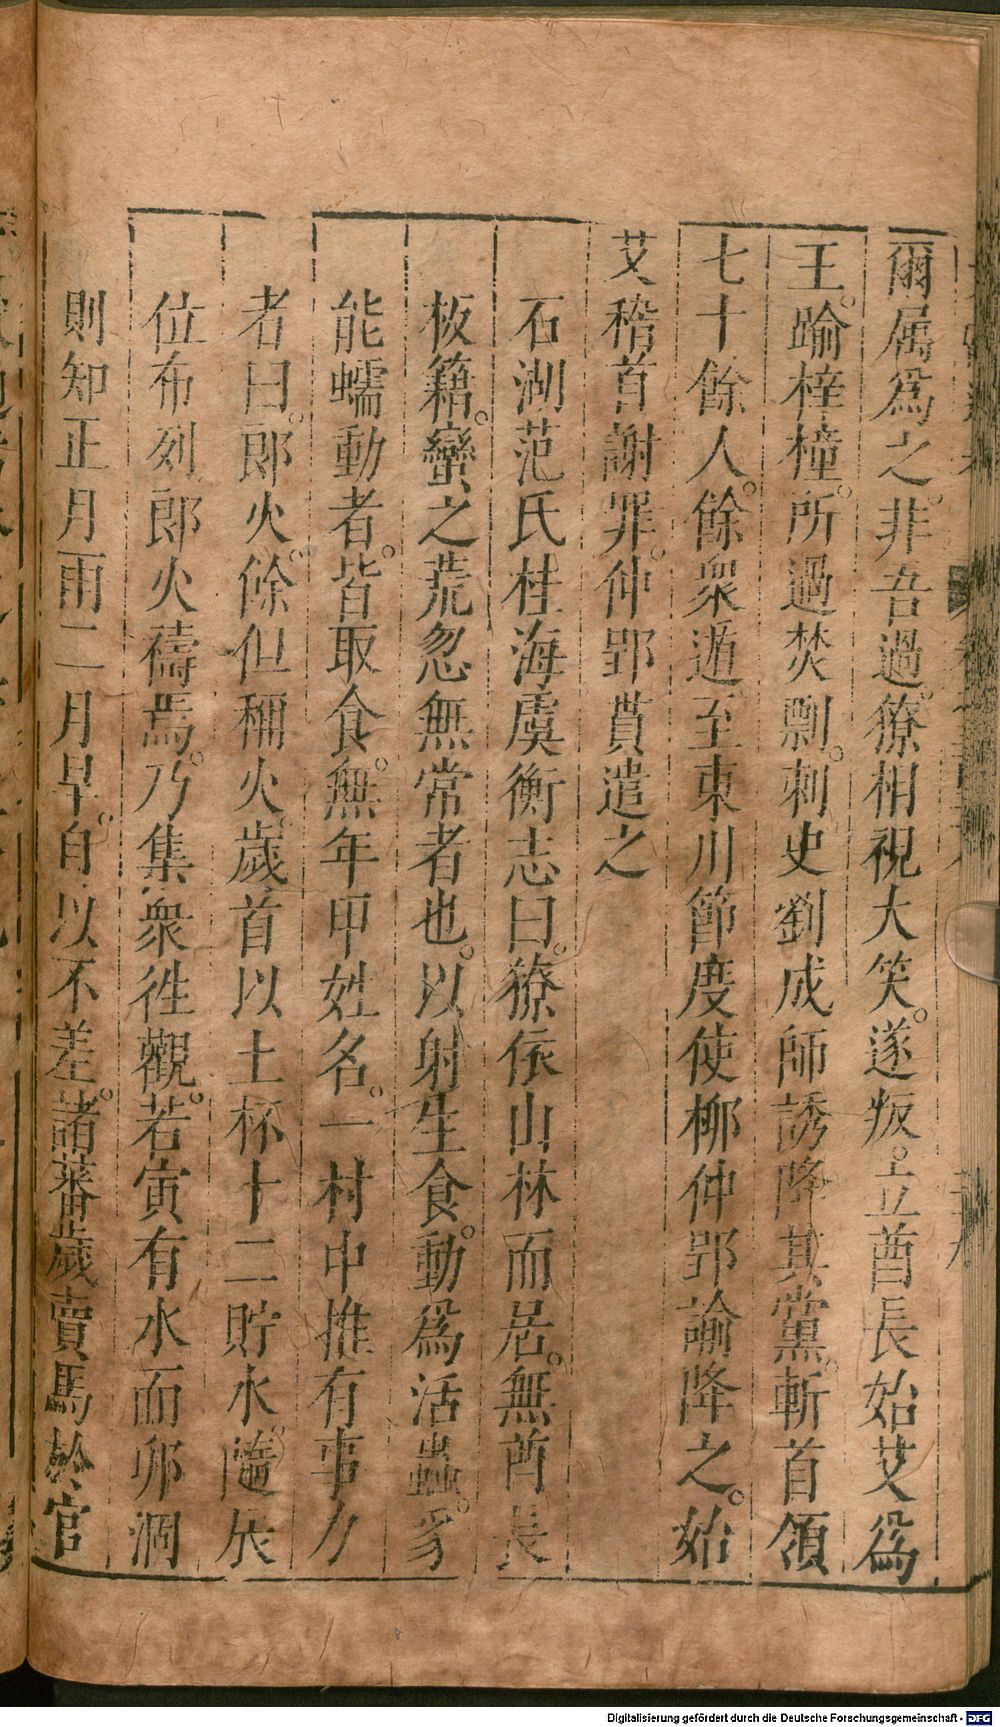 爾属爲之。非吾過。獠相視大笑。遂叛。立酋長始艾爲
王。踰梓橦。所過焚剽。刺史劉成師誘降其黨。斬首領
七十餘人。餘衆遁至東川節度使柳仲郢諭降之。始
艾稽首謝罪。仲郢貰遣之
石湖范氏桂海虞衡志曰。獠依山林而居。無酋長
板籍。蠻之荒忽無常者也。以射生食。動爲活蟲豸
能蠕動者。皆取食。無年甲姓名。一村中推有事力
者曰。郎火。餘但稱火。歲首以土杯十二貯水。隨辰
位布列郎火禱焉。乃集衆徃觀。若寅有水而卯涸
則知正月雨二月旱。自以不差。諸蕃歲賣馬於官
Digitalisierung gefördert durch die Deutsche Forschungsgemeinschaft - DFG